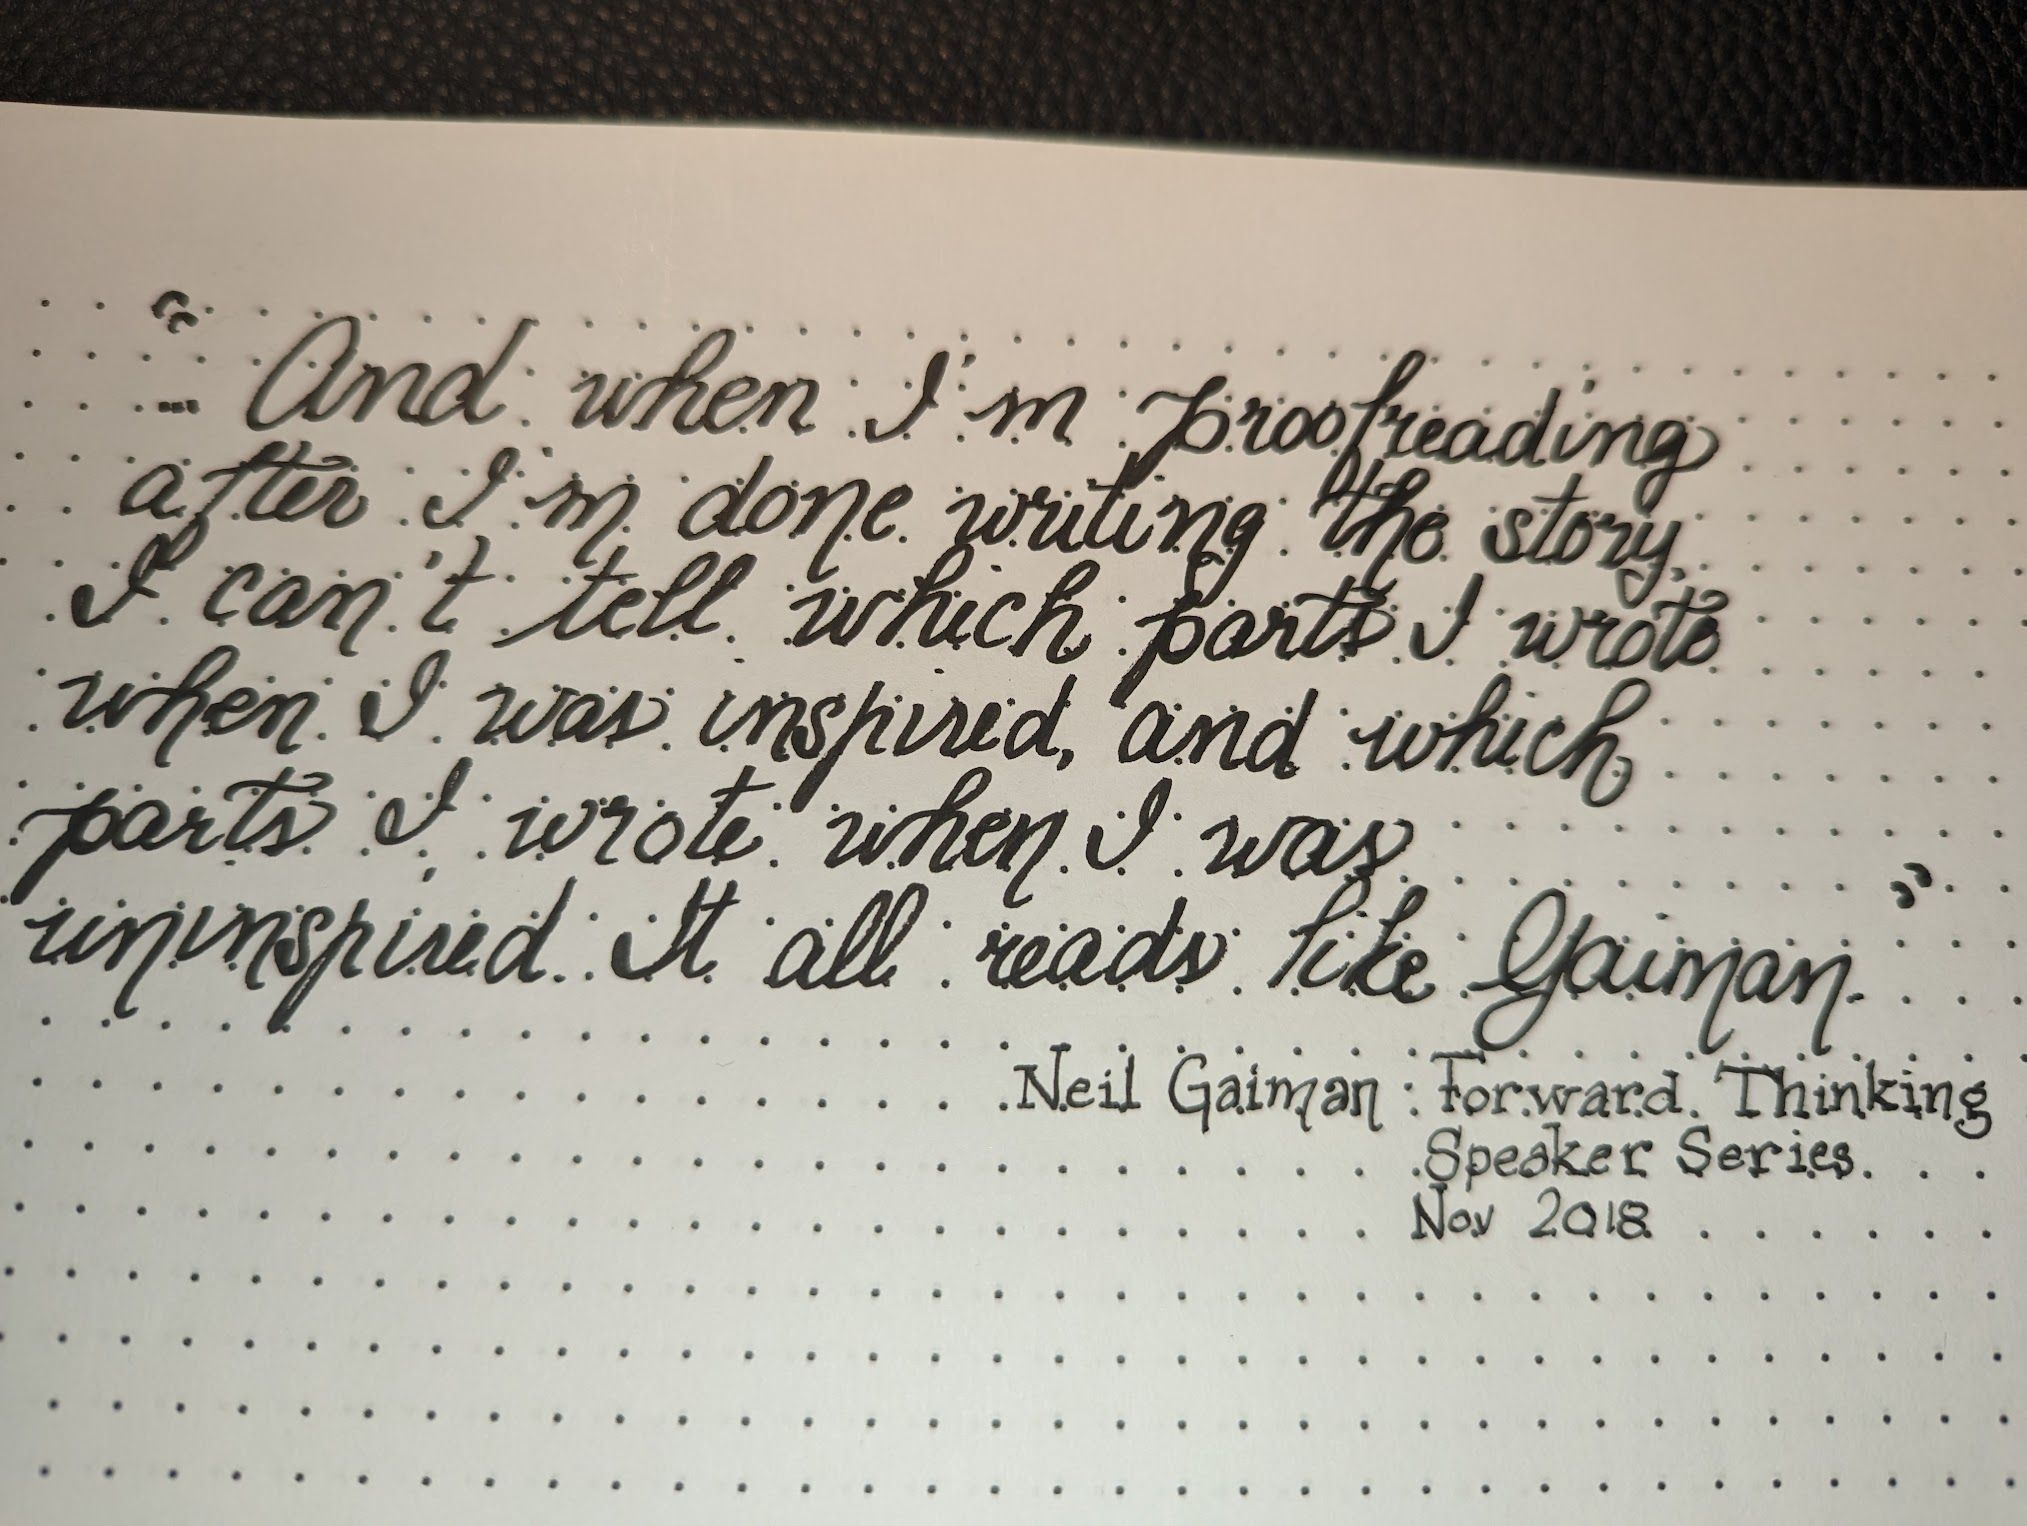 “... And when I'm proofreading
after I'm done writing the story,
I can't tell which parts I wrote
when I was inspired, and which
parts I wrote when I was
uninspired. It all reads like Gaiman.”
Neil Gaiman: Forward Thinking
Speaker Series.
Nov 2018